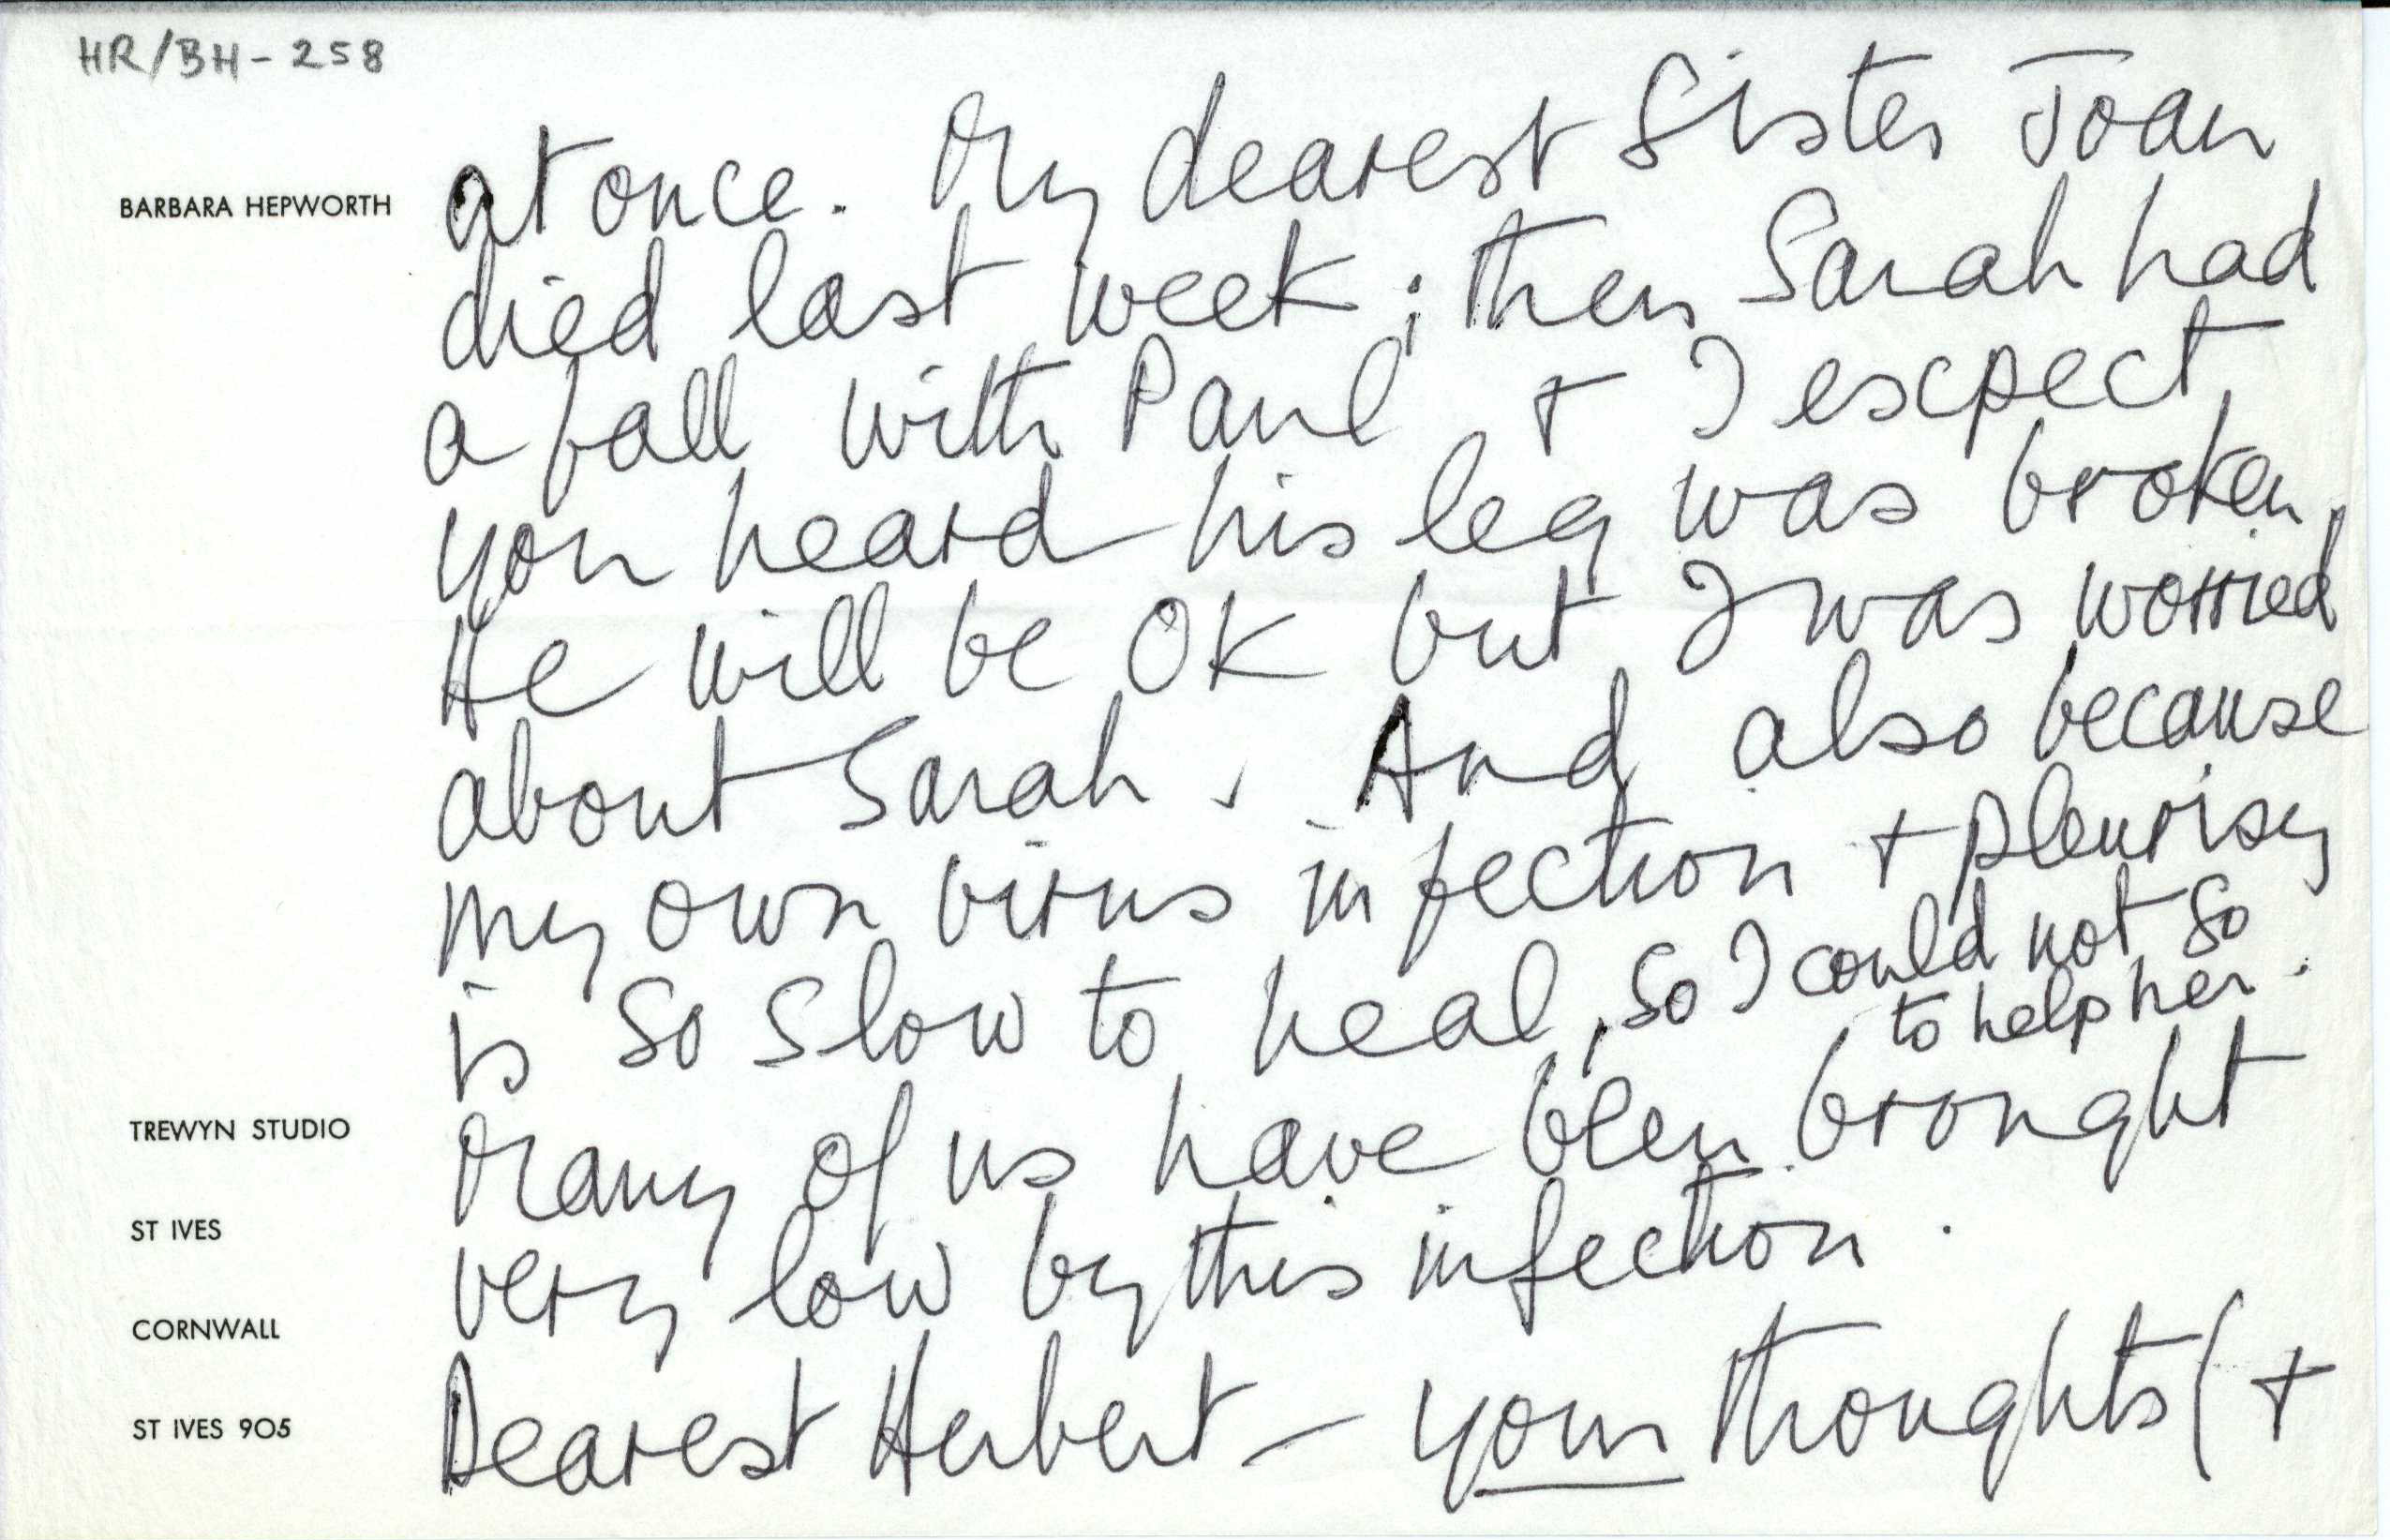 HR/BH-258
BARBARA HEPWORTH
at once. My dearest Sister Joan
died last week; then Sarah had
a fall with Paul + I expect
you heard his leg was broken.
He will be OK but I was worried
about Sarah. And also because
my own virus infection + pleurisy
is so slow to heal, so I could not go
to help her.
Many of us have been brought
very low by this infection.
Dearest Herbert – your thoughts (+
TREWYN STUDIO
ST IVES
CORNWALL
ST IVES 905